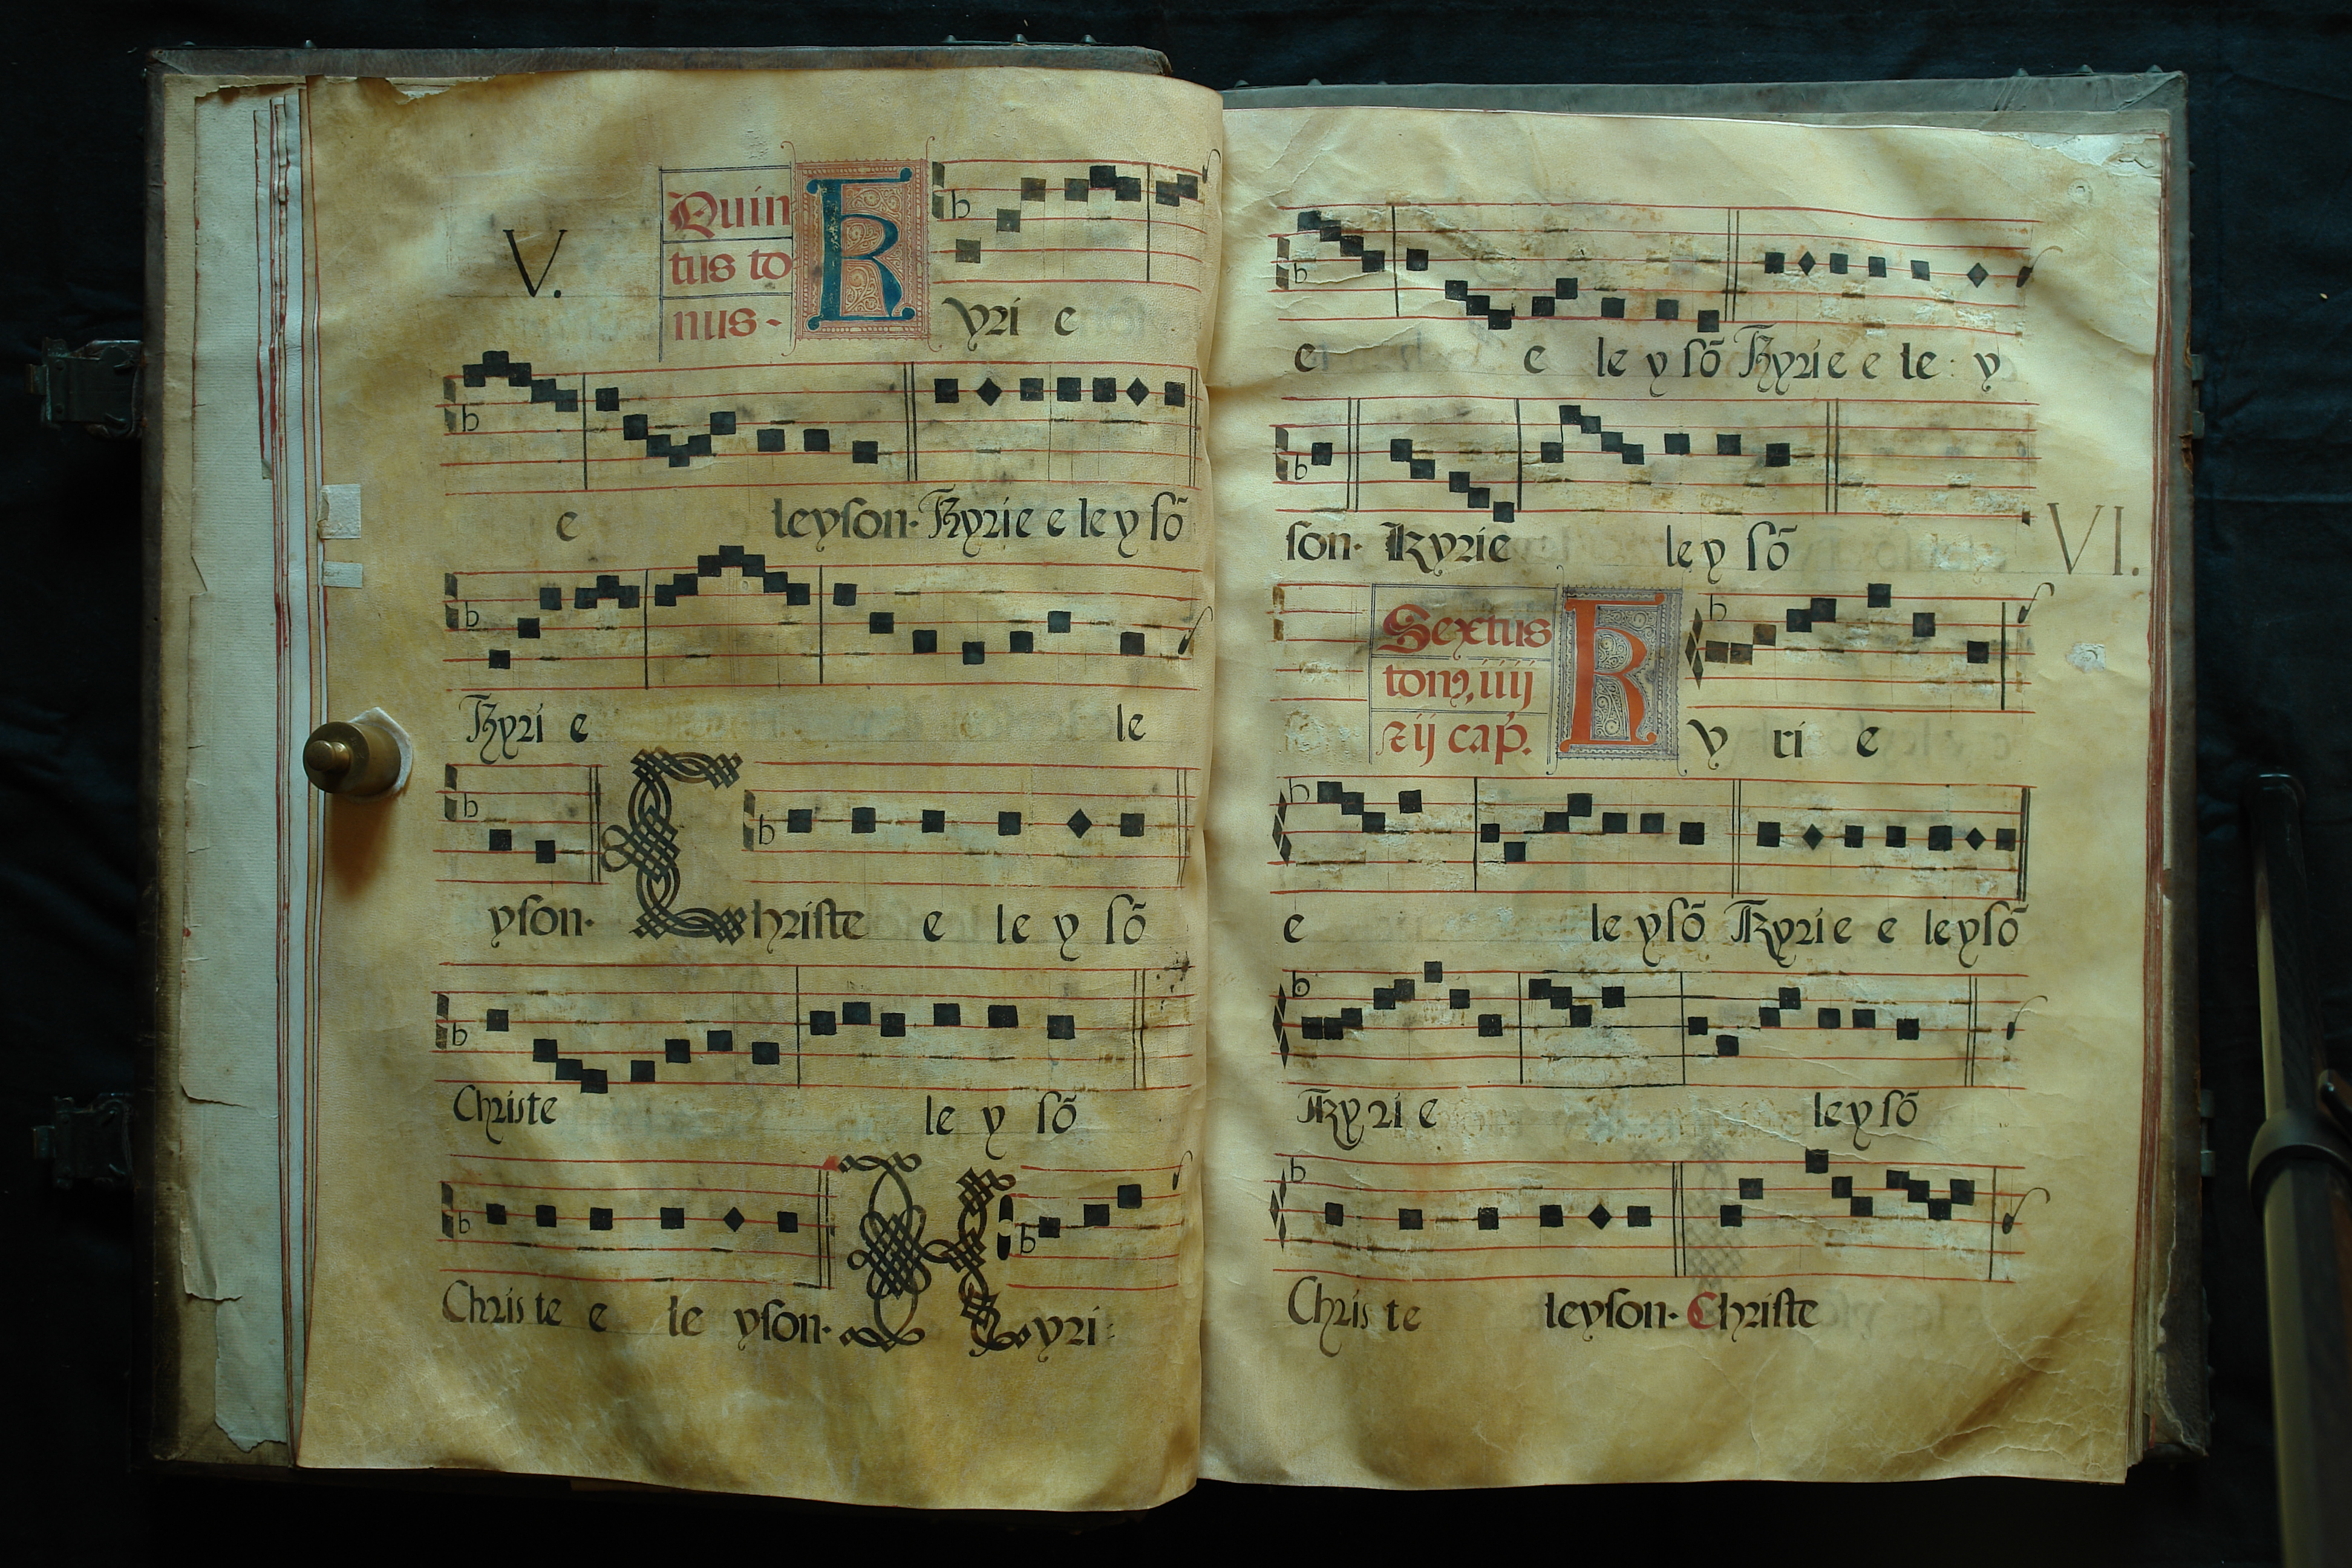 V.
Quin
tus to
nus.
Kyri e
e leyson. Kyrie e le y sõ
Kyri e le
yson. Christe e le y sõ
Christe le y sõ
Chris te e le yson. Kyri
e e le y sõ Kyrie e le y
son. Kyrie le y sõ
VI.
Sextus
K y ri e
e le y sõ Kyrie e leysõ
Kyri e leysõ
Chris te leyson. Christe